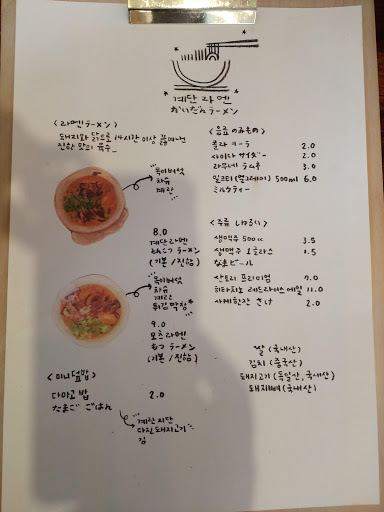 계단라멘
かいだんラーメン
<라멘 ラーメン>
돼지와 닭으로 14시간이상 끓여낸
진한 맛의 육수_
목이버섯
차슈
계란
8.0
계단라멘
とんこつラーメン
(기본/진함)
목이버섯
차슈
계란
튀김막창*
9.0
모츠라멘
もつラーメン
(기본/진함)
<미니덮밥>
다마고밥 2.0
たまご ごはん
계란지단
다진돼지고기
김
<음료 のみもの>
콜라 コーラ 2.0
사이다 サイダー 2.0
라무네 ラムネ 3.0
밀크티(말레이) 500ml 6.0
ミルクティー
<주류 しゅるい>
생맥주 500cc 3.5
생맥주 1글라스 1.5
なまビール
산토리 프리미엄 7.0
히타치노 레드라이스에일 11.0
사케한잔 さけ 2.0
쌀 (국내산)
김치 (중국산)
돼지고기 (독일산, 국내산)
돼지뼈 (국내산)